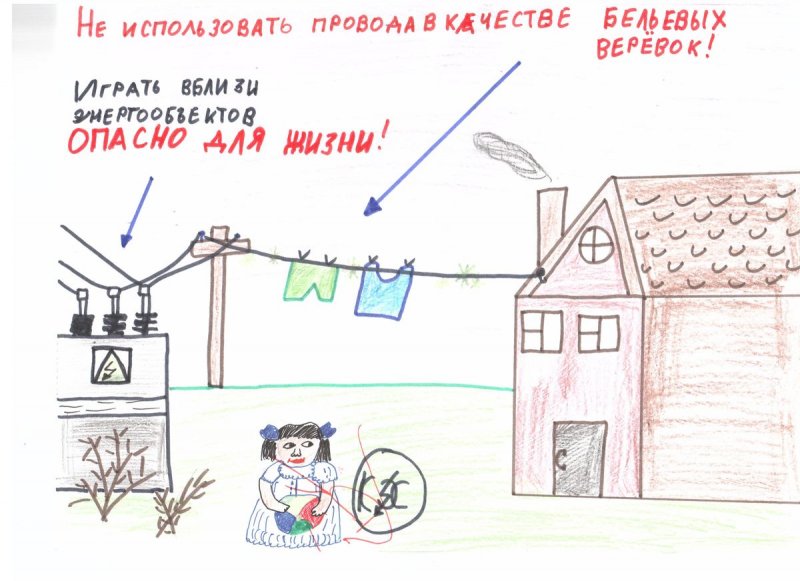 Не использовать провода в качестве бельевых
верёвок!
Играть вблизи
энергообъектов
ОПАСНО ДЛЯ ЖИЗНИ!
КЭС